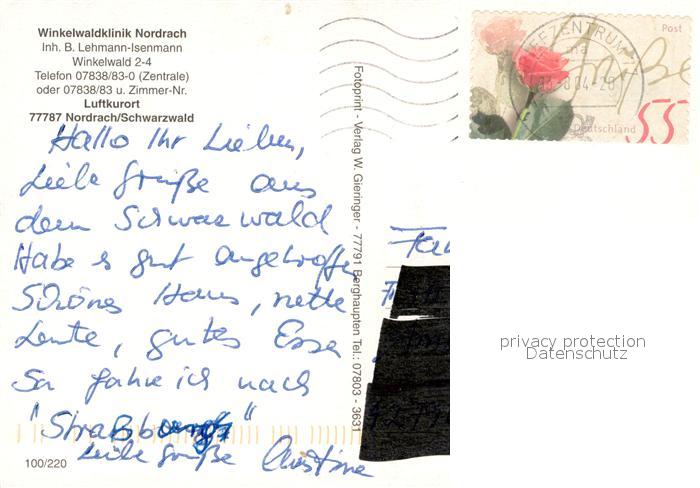 Winkelwaldklinik Nordrach
Inh. B. Lehmann-Isenmann
Winkelwald 2-4
Telefon 07838/83-0 (Zentrale)
oder 07838/83 u. Zimmer-Nr.
Luftkurort
77787 Nordrach/Schwarzwald
Hallo Ihr Lieben,
Liebe Grüße aus
dem Schwarzwald
Habe es gut angetroffen
Schönes Haus, nette
Leute, gutes Essen
Sa fahre ich nach
"Straßburg"
Liebe Grüße Christine
100/220
Fotoprint - Verlag W. Gieringer - 77791 Berghaupten Tel.: 07803 - 3631
Post
Grüße
Deutschland
55
BRIEFZENTRUM 77
Fam
privacy protection
Datenschutz